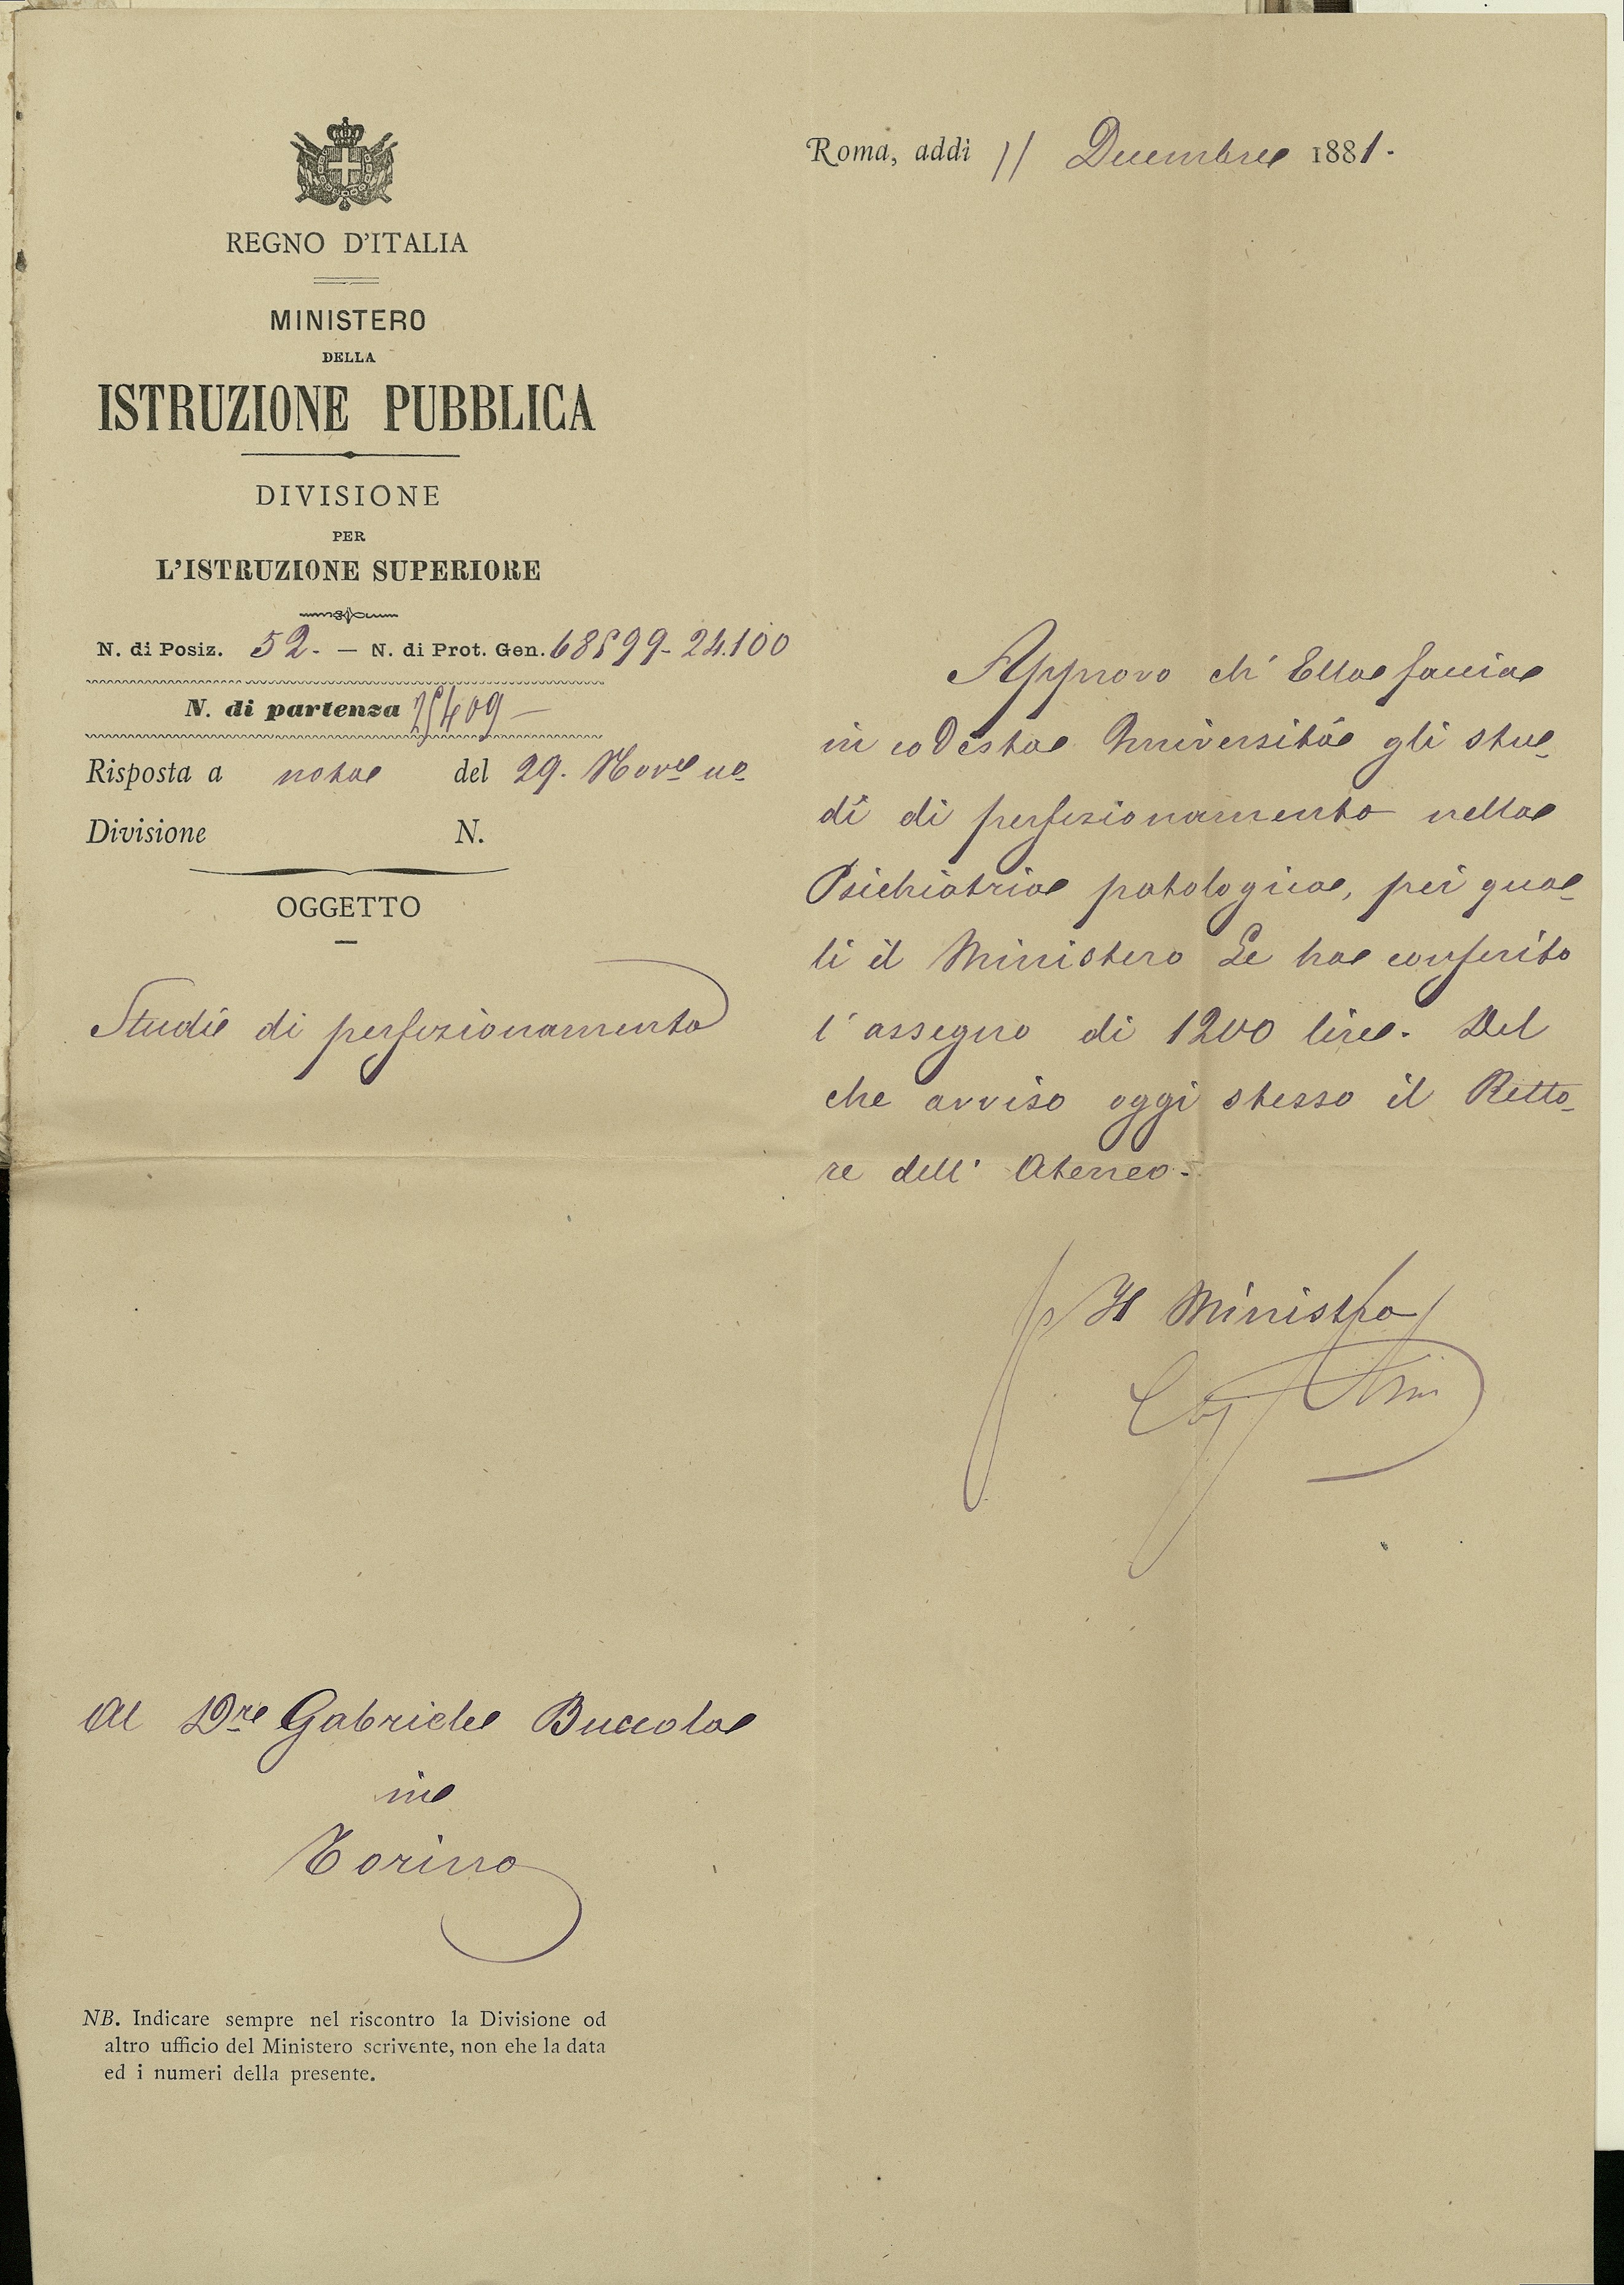 REGNO D'ITALIA
MINISTERO
DELLA
ISTRUZIONE PUBBLICA
DIVISIONE
PER
L'ISTRUZIONE SUPERIORE
N. di Posiz. 52. — N. di Prot. Gen. 68599-24100
N. di partenza 25409 —
Risposta a nota del 29. Nov.e
Divisione N.
OGGETTO
Studi di perfezionamento
Roma, addì 11 Decembre 1881.
Approvo ch' Ella faccia
in codesta Università gli stu-
dî di perfezionamento nella
Psichiatria patologica, pei qua-
li il Ministero Le ha conferito
l'assegno di 1200 lire. Del
che avviso oggi stesso il Retto-
re dell' Ateneo.
p Il Ministro
Al D.re Gabriele Buccola
in
Torino
NB. Indicare sempre nel riscontro la Divisione od
altro ufficio del Ministero scrivente, non ehe la data
ed i numeri della presente.